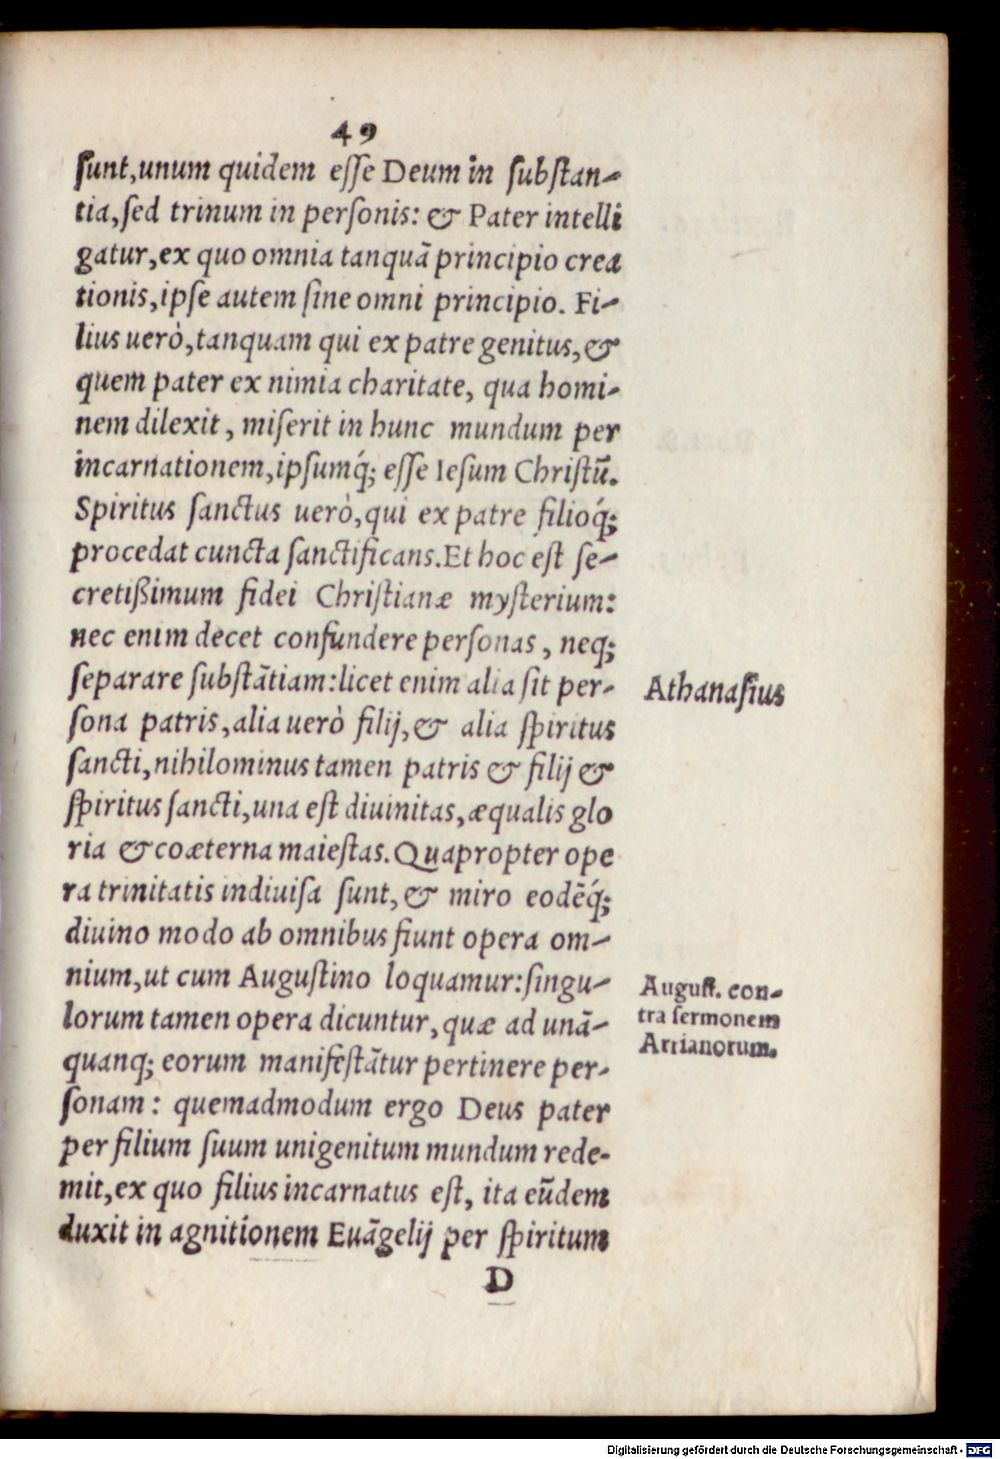 49
sunt,unum quidem esse Deum in substan-
tia,sed trinum in personis: & Pater intelli
gatur,ex quo omnia tanquā principio crea
tionis,ipse autem sine omni principio. Fi-
lius uerò,tanquam qui ex patre genitus,&
quem pater ex nimia charitate, qua homi-
nem dilexit, miserit in hunc mundum per
incarnationem,ipsumq́; esse Iesum Christū.
Spiritus sanctus uerò,qui ex patre filioq́;
procedat cuncta sanctificans.Et hoc est se-
cretißimum fidei Christianæ mysterium:
nec enim decet confundere personas, neq;
separare substātiam:licet enim alia sit per-
sona patris,alia uerò filij,& alia spiritus
sancti,nihilominus tamen patris & filij &
spiritus sancti,una est diuinitas,æqualis glo
ria & coæterna maiestas.Quapropter ope
ra trinitatis indiuisa sunt,& miro eodēq́;
diuino modo ab omnibus fiunt opera om-
nium,ut cum Augustino loquamur:singu-
lorum tamen opera dicuntur,quæ ad unā-
quanq; eorum manifestātur pertinere per-
sonam: quemadmodum ergo Deus pater
per filium suum unigenitum mundum rede-
mit,ex quo filius incarnatus est, ita eūdem
duxit in agnitionem Euāgelij per spiritum
D
Athanasius
August. con-
tra sermonem
Arrianorum.
Digitalisierung gefördert durch die Deutsche Forschungsgemeinschaft - DFG